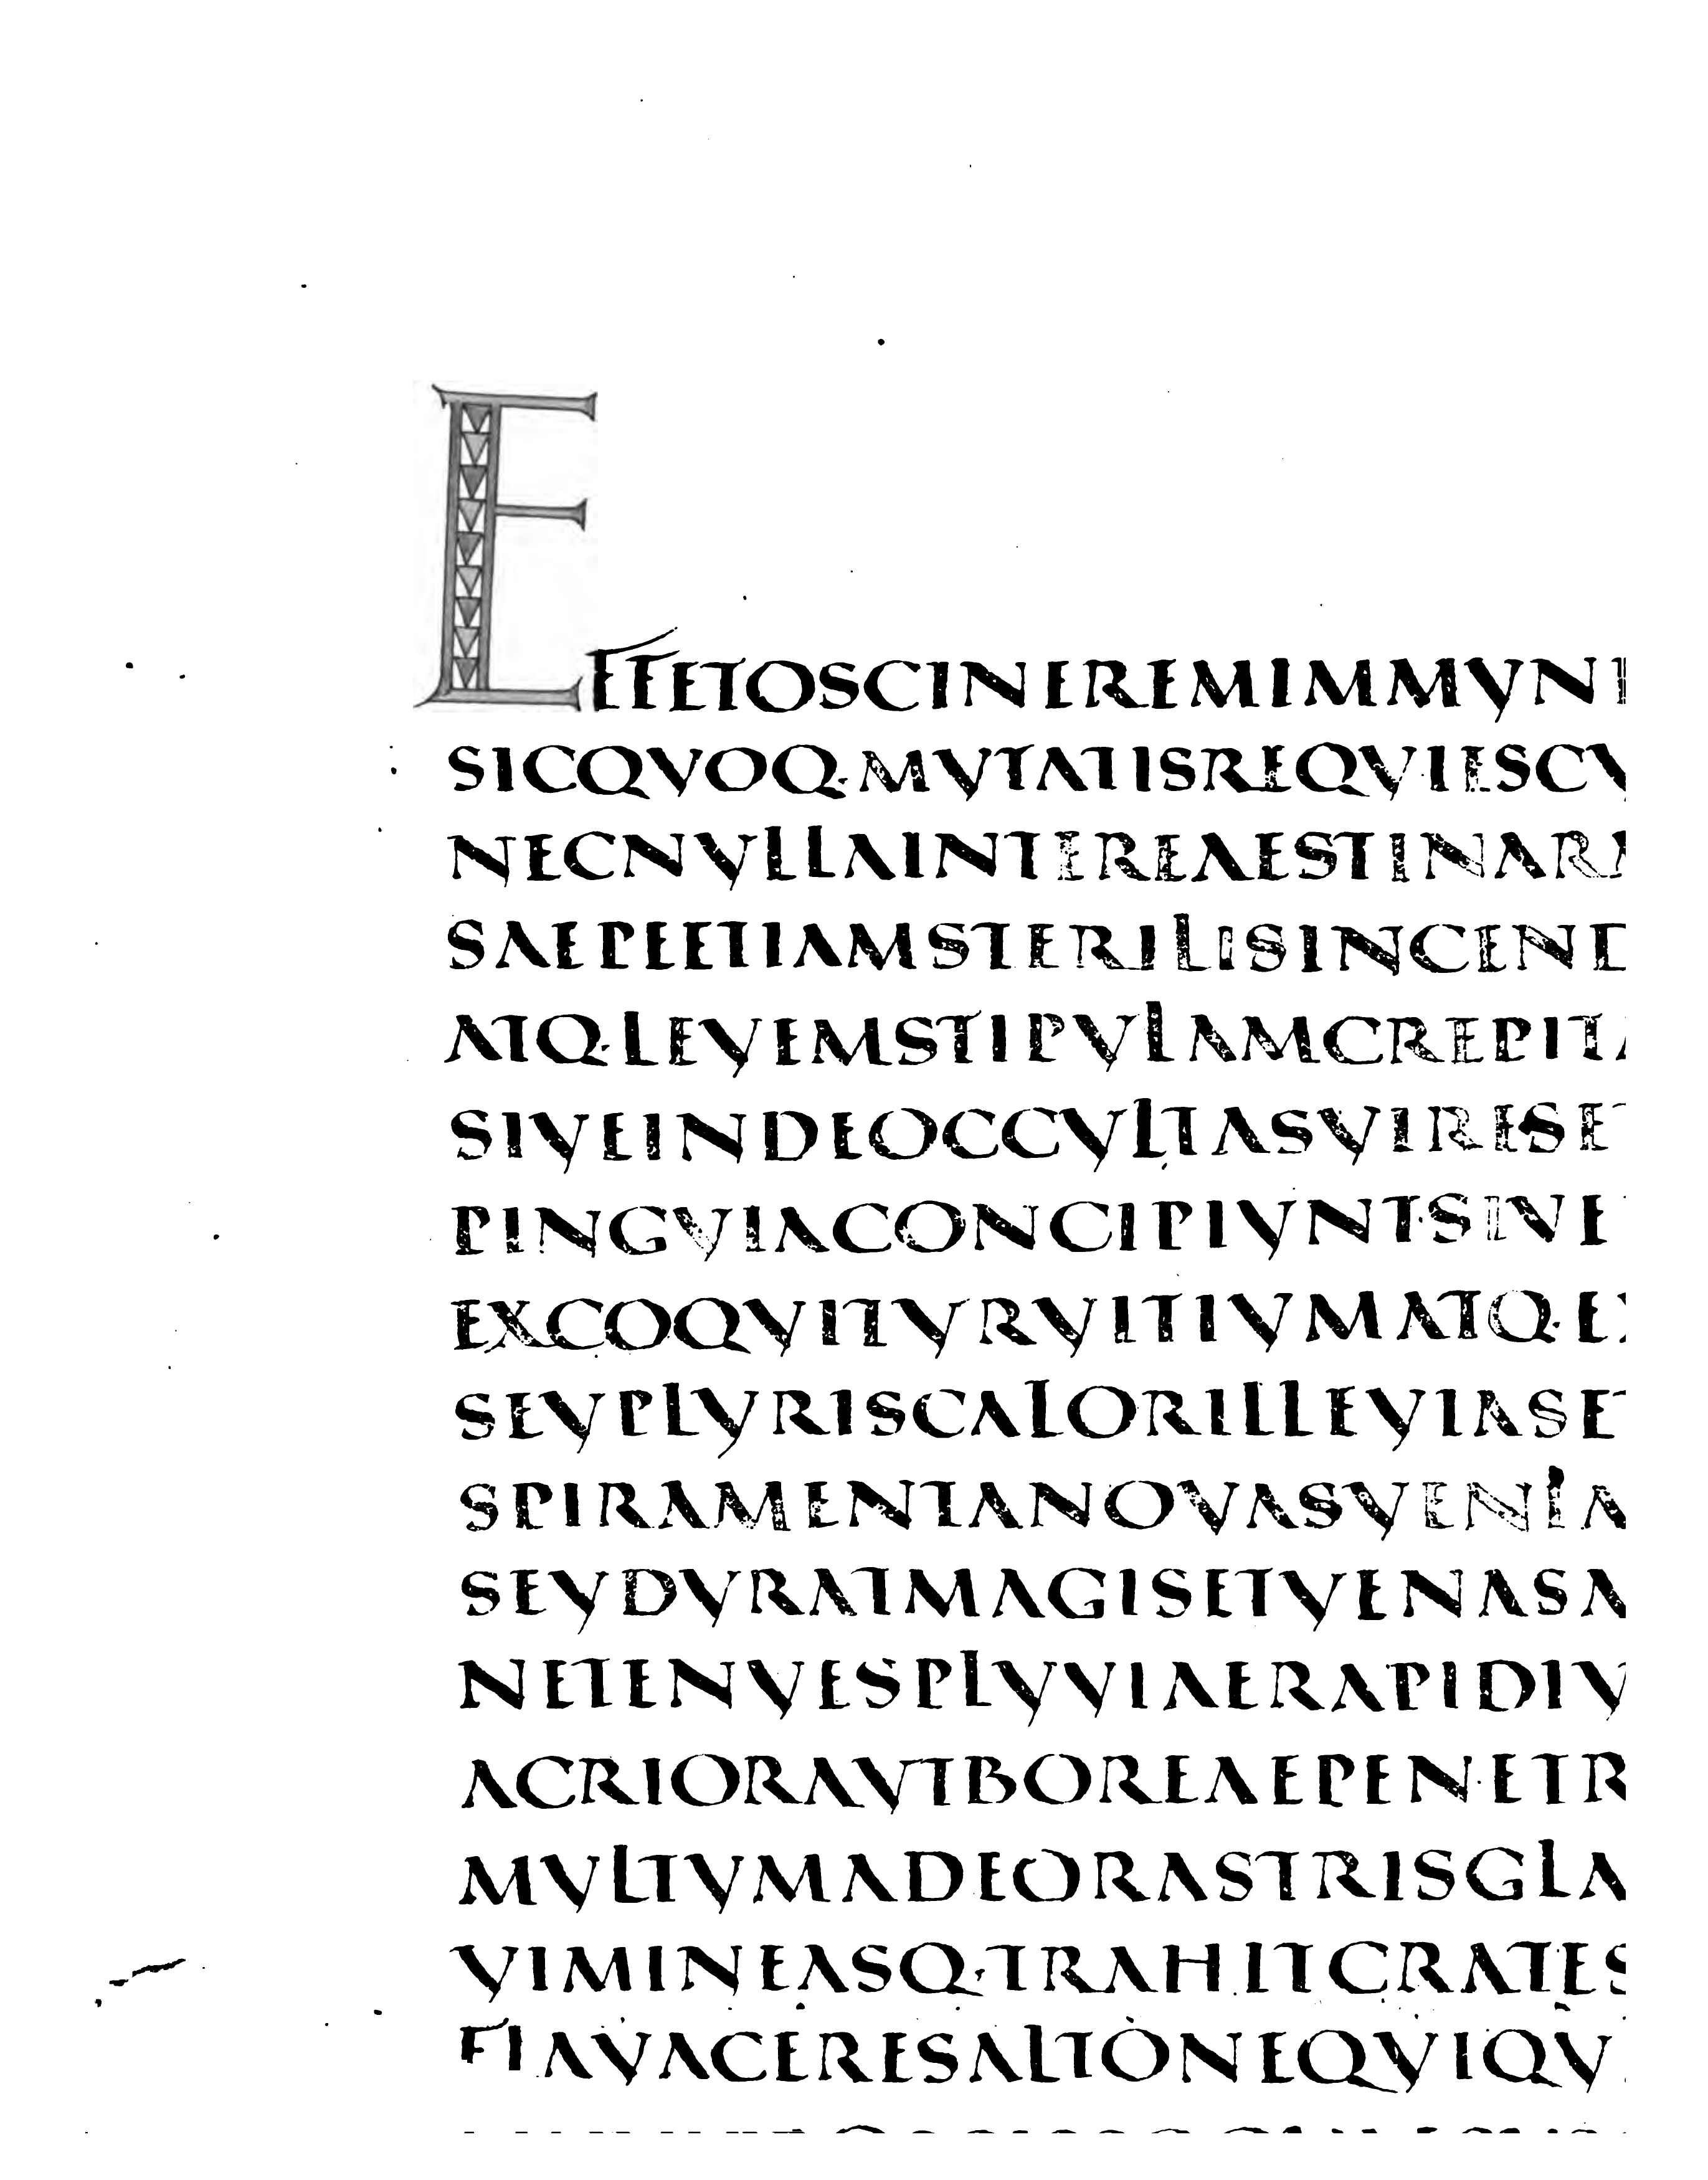 EFFETOSCINEREMIMMVN
SICQVOQ·MVTATISREQVIESCV
NECNVLLAINTEREAESTINARA
SAEPEETIAMSTERILISINCEND
ATQ·LEVEMSTIPVLAMCREPITA
SIVEINDEOCCVLTASVIRESET
PINGVIACONCIPIVNT·SIVE
EXCOQVITVRVITIVMATQ·EX
SEVPLVRISCALORILLEVIASET
SPIRAMENTANOVASVENIA
SEVDVRATMAGISETVENASA
NETENVESPLVVIAERAPIDIV
ACRIORAVTBOREAEPENETR
MVLTVMADEORASTRISGLA
VIMINEASQ·TRAHITCRATES
FLAVACERESALTONEQVIQV